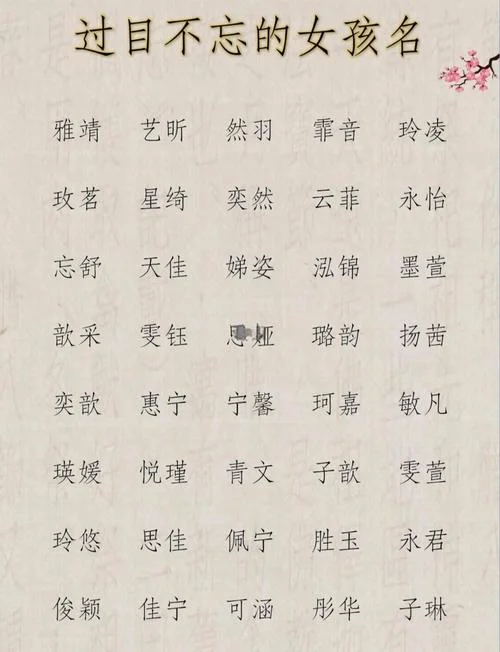 过目不忘的女孩名
雅靖 艺昕 然羽 霏音 玲凌
玫茗 星绮 奕然 云菲 永怡
忘舒 天佳 娣姿 泓锦 墨萱
歆采 雯钰 思娅 璐韵 扬茜
奕歆 惠宁 宁馨 珂嘉 敏凡
瑛媛 悦瑾 青文 子歆 雯萱
玲悠 思佳 佩宁 胜玉 永君
俊颖 佳宁 可涵 彤华 子琳